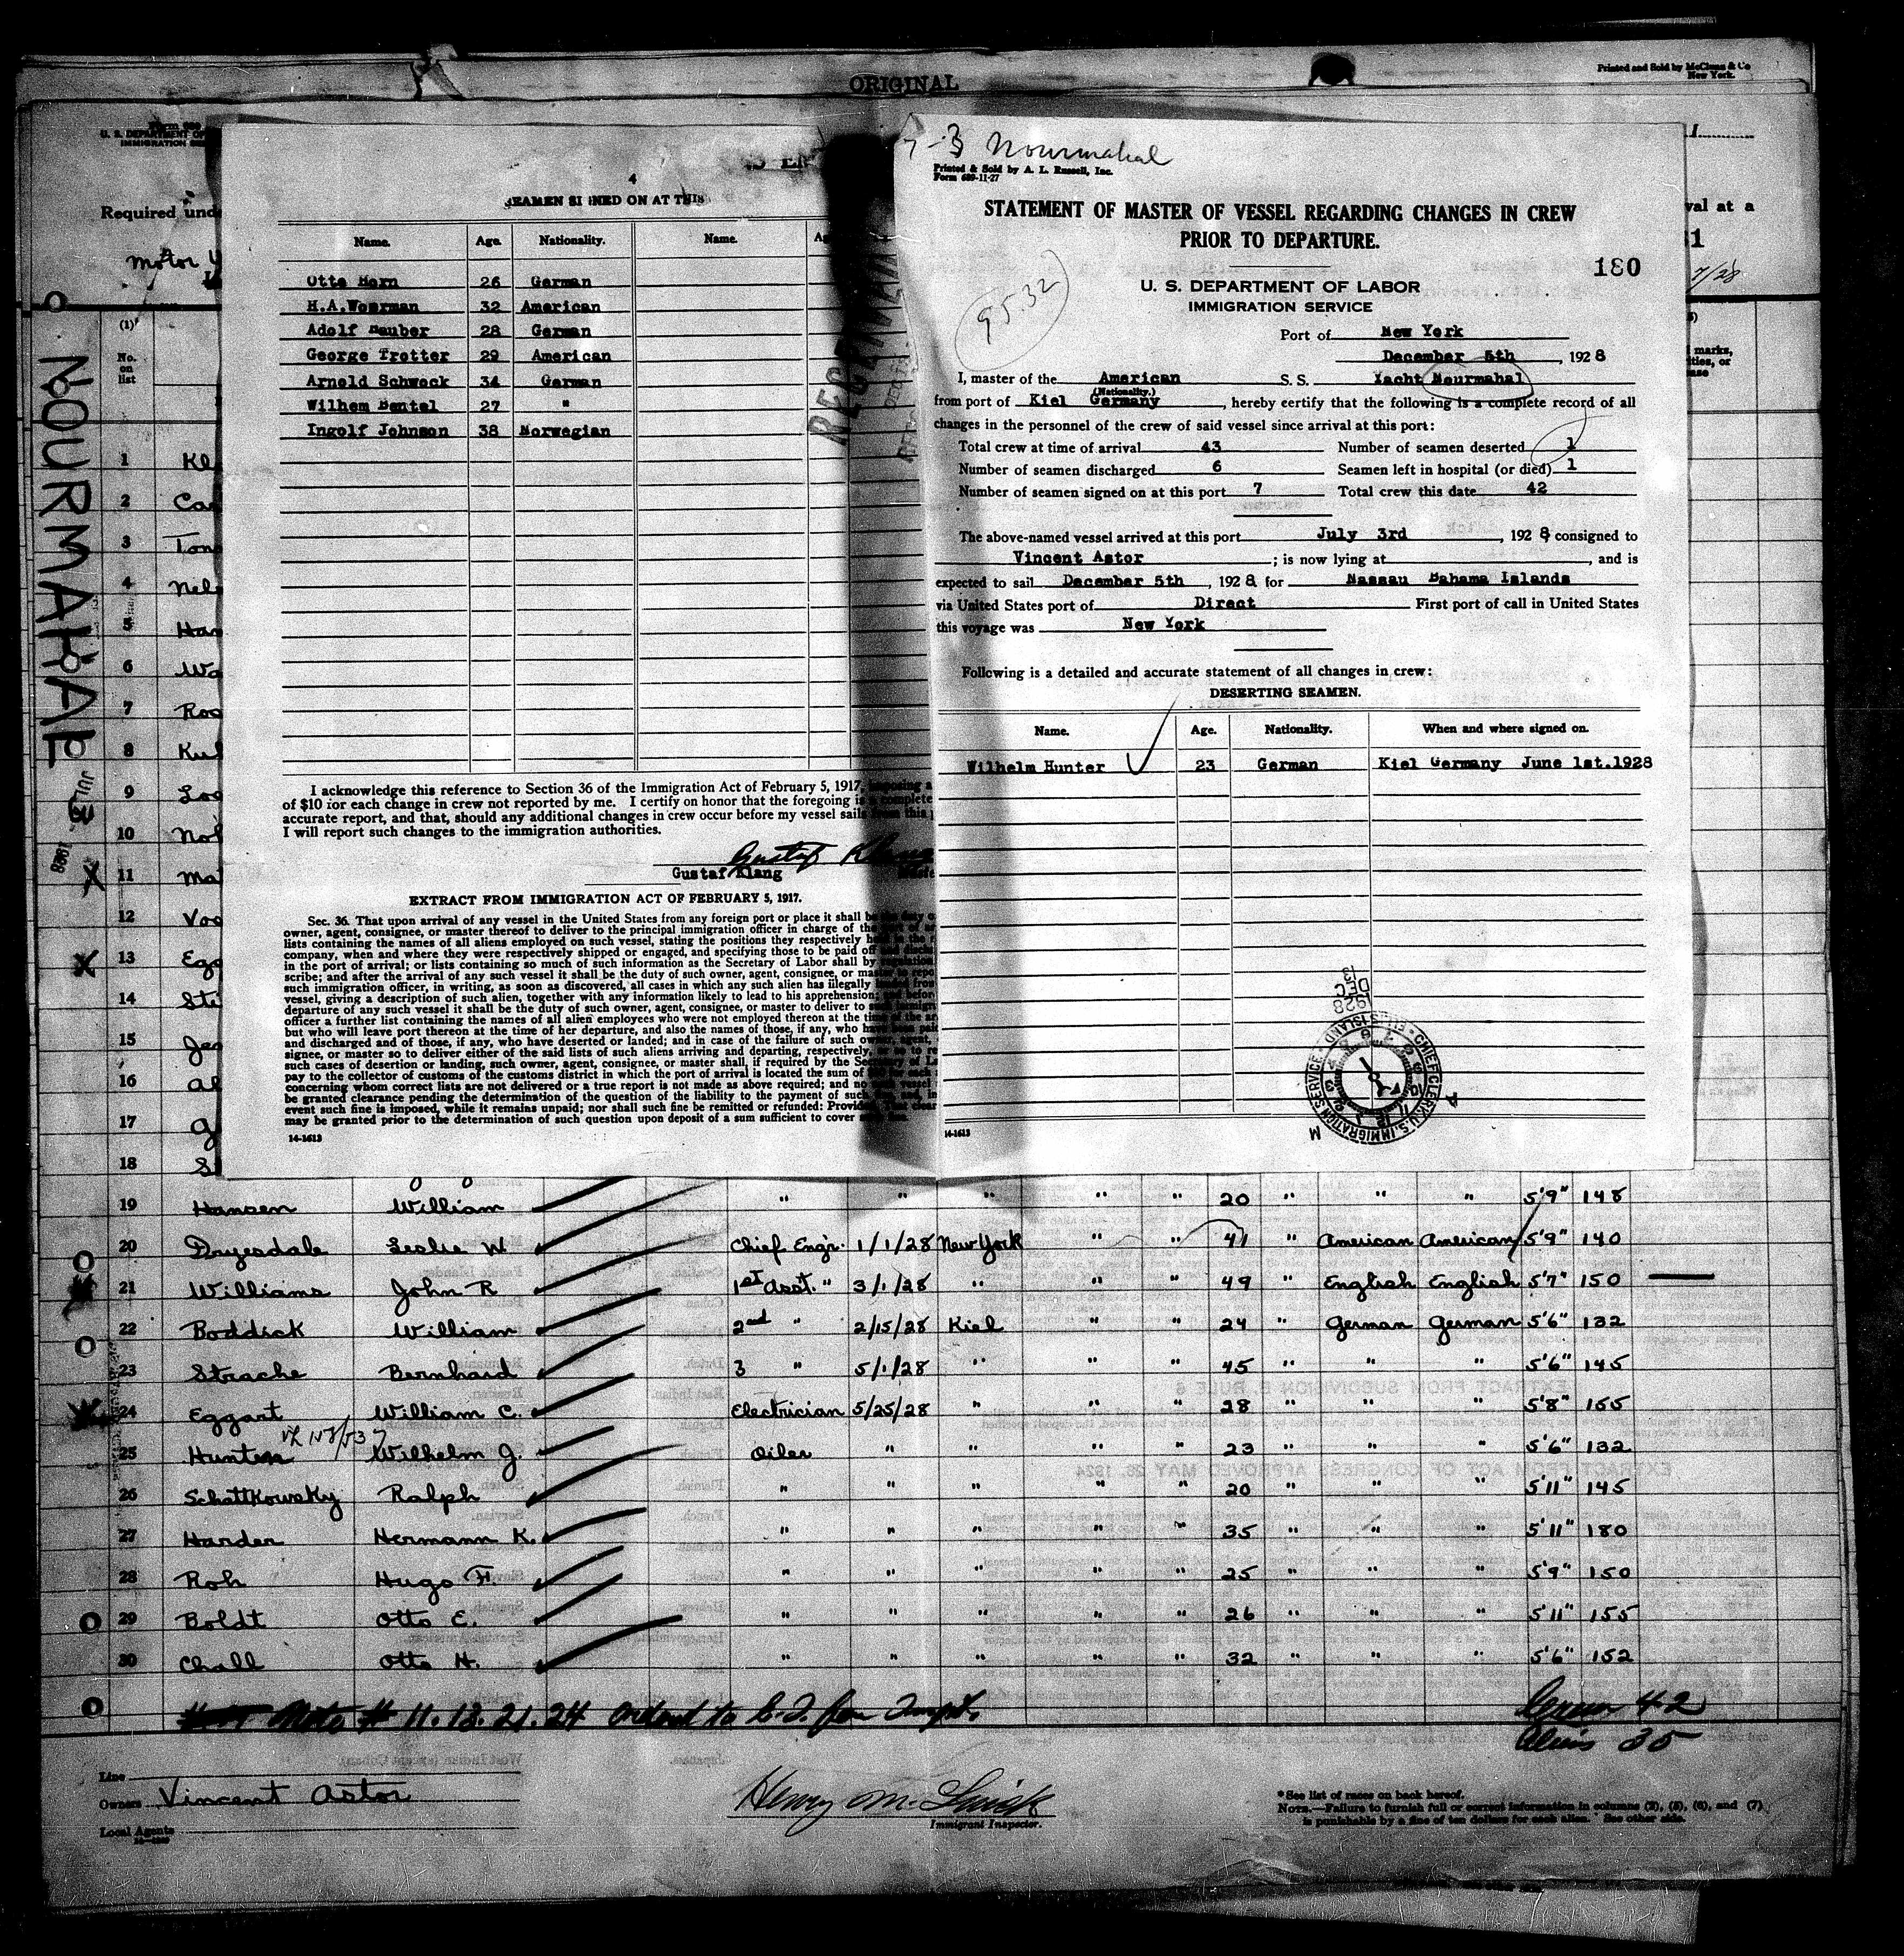 ORIGINAL
Printed and Sold by McClunn & Co
New York.
U. S. DEPARTMENT OF
IMMIGRATION
Required und
val at a
Motor Y
NOURMAHAL
JUL 3 1928
(1)
No.
on
list
marks,
4
SEAMEN SIGNED ON AT THIS
Name. Age. Nationality. Name. Ag
Otto Horn 26 German
H.A.Woerman 32 American
Adolf Dauber 28 German
George Trotter 29 American
Arnold Schwock 34 German
Wilhem Bentel 27 "
Ingolf Johnson 38 Norwegian
I acknowledge this reference to Section 36 of the Immigration Act of February 5, 1917, imposing a
of $10 for each change in crew not reported by me. I certify on honor that the foregoing is a complete
accurate report, and that, should any additional changes in crew occur before my vessel sails from this
I will report such changes to the immigration authorities.
Gustaf Klang
Gustaf Klang
EXTRACT FROM IMMIGRATION ACT OF FEBRUARY 5, 1917.
Sec. 36. That upon arrival of any vessel in the United States from any foreign port or place it shall be the duty o
owner, agent, consignee, or master thereof to deliver to the principal immigration officer in charge of the port of
lists containing the names of all aliens employed on such vessel, stating the positions they respectively hold in the
company, when and where they were respectively shipped or engaged, and specifying those to be paid off
in the port of arrival; or lists containing so much of such information as the Secretary of Labor shall by regulation
scribe; and after the arrival of any such vessel it shall be the duty of such owner, agent, consignee, or master to repo
such immigration officer, in writing, as soon as discovered, all cases in which any such alien has illegally landed from
vessel, giving a description of such alien, together with any information likely to lead to his apprehension; and befor
departure of any such vessel it shall be the duty of such owner, agent, consignee, or master to deliver to such
officer a further list containing the names of all alien employees who were not employed thereon at the time of the ar
but who will leave port thereon at the time of her departure, and also the names of those, if any, who have been paid
and discharged and of those, if any, who have deserted or landed; and in case of the failure of such owner, agent,
signee, or master so to deliver either of the said lists of such aliens arriving and departing, respectively, or so to re
such cases of desertion or landing, such owner, agent, consignee, or master shall, if required by the Secretary of La
pay to the collector of customs of the customs district in which the port of arrival is located the sum of
concerning whom correct lists are not delivered or a true report is not made as above required; and no such vessel
be granted clearance pending the determination of the question of the liability to the payment of such fine, and, in
event such fine is imposed, while it remains unpaid; nor shall such fine be remitted or refunded: Provided, That clear
may be granted prior to the determination of such question upon deposit of a sum sufficient to cover
14-1613
7-3 Nourmahal
Printed & Sold by A. L. Russell, Inc.
Form 689-11-27
STATEMENT OF MASTER OF VESSEL REGARDING CHANGES IN CREW
PRIOR TO DEPARTURE.
180
9532
U. S. DEPARTMENT OF LABOR
IMMIGRATION SERVICE
Port of New York
December 5th, 1928
I, master of the American S. S. Yacht Nourmahal
(Nationality.)
from port of Kiel Germany, hereby certify that the following is a complete record of all
changes in the personnel of the crew of said vessel since arrival at this port:
Total crew at time of arrival 43 Number of seamen deserted 1
Number of seamen discharged 6 Seamen left in hospital (or died) 1
Number of seamen signed on at this port 7 Total crew this date 42
The above-named vessel arrived at this port July 3rd, 1928 consigned to
Vincent Astor; is now lying at, and is
expected to sail December 5th, 1928 for Nassau Bahama Islands
via United States port of Direct First port of call in United States
this voyage was New York
Following is a detailed and accurate statement of all changes in crew:
DESERTING SEAMEN.
Name. Age. Nationality. When and where signed on.
Wilhelm Hunter 23 German Kiel Germany June 1st.1928
CHIEF CLERK U.S. IMMIGRATION SERVICE ELLIS ISLAND
14-1613
1 Kl
2 Ca
3 Ton
4 Nel
5 Han
6 Wa
7 Ros
8 Kul
9 Los
10 Nol
11 Ma
12 Vos
13 Egg
14 Ste
15 Jes
16 Al
17 G
18 S
19 Hansen William " " " " " 20 " " " 5'9" 148
20 Drysdale Leslie W Chief Engr. 1/1/28 New York " " 41 " American American 5'9" 140
21 Williams John R 1st Asst. " 3/1/28 " " " 49 " English English 5'7" 150
22 Boddick William 2nd " 2/15/28 Kiel " " 24 " German German 5'6" 132
23 Strache Bernhard 3 " 5/1/28 " " " 45 " " " 5'6" 145
24 Eggart William C. Electrician 5/25/28 " " " 28 " " " 5'8" 155
25 Hunter Wilhelm J. Oiler " " " " 23 " " " 5'6" 132
26 Schattkowsky Ralph " " " " " 20 " " " 5'11" 145
27 Harder Hermann K. " " " " " 35 " " " 5'11" 180
28 Roh Hugo F. " " " " " 25 " " " 5'9" 150
29 Boldt Otto E. " " " " " 26 " " " 5'11" 155
30 Chall Otto H. " " " " " 32 " " " 5'6" 152
Note # 11. 13. 21. 24 Ordered to E. I. for Inspt.
Crew 42
Aliens 35
Line
Owners Vincent Astor
Local Agents
Henry M.
Immigrant Inspector.
*See list of races on back hereof.
NOTE.—Failure to furnish full or correct information in columns (3), (5), (6), and (7)
is punishable by a fine of ten dollars for each alien. See other side.